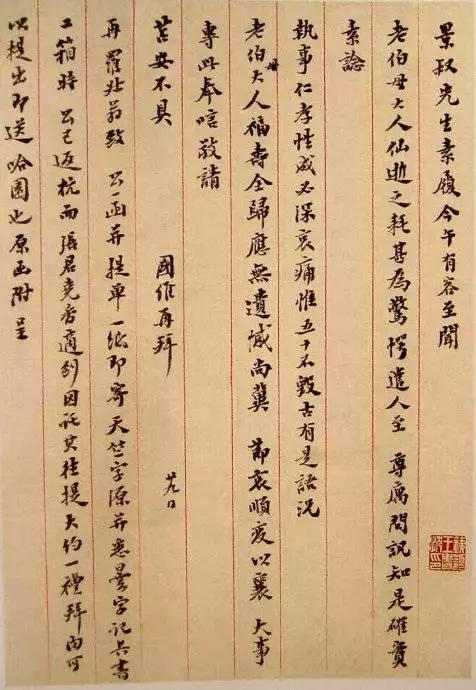 景叔先生素履今午有客至聞
老伯母大人仙逝之耗甚為驚愕遣人至 尊寓問訊知是確實
素諗
執事仁孝性成必深哀痛惟五十不毀古有是語況
老伯母大人福壽全歸應無遺憾尚冀 節哀順變以襄 大事
專此奉唁敬請
苫安不具 國維再拜 廿九日
再 羅叔翁致 公一函并提單一紙即寄 天竺字源并悉曇字記共書
箱時 公已返杭而 張君 適到因託其往提大約一禮拜內可
以提出即送 哈園也原函附呈